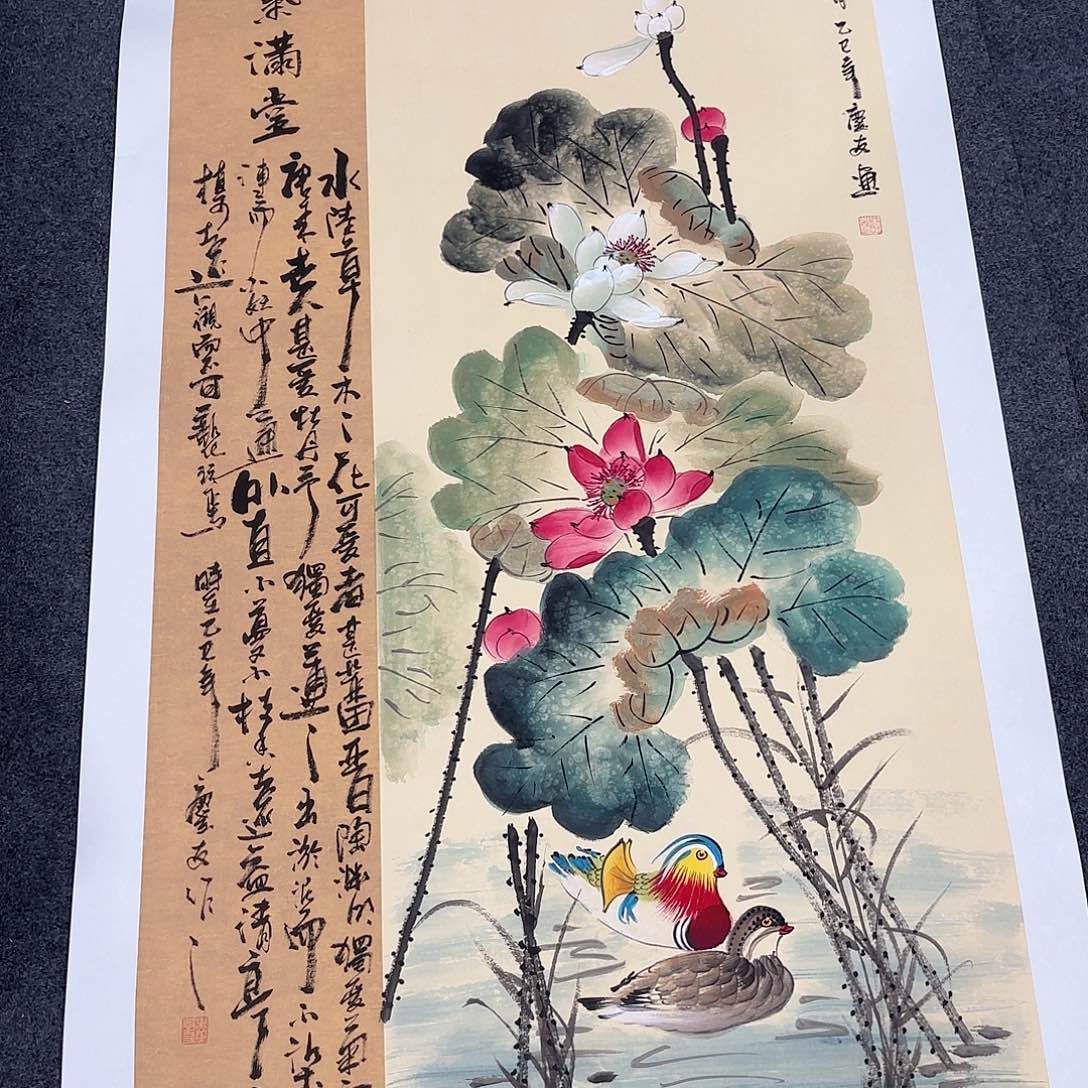 乙巳年慶友画
滿堂
水陸草木之花可愛者甚蕃晉陶淵明獨愛菊
唐來甚愛牡丹予獨愛蓮之出淤泥而不染
漣而不妖中通外直不蔓不枝香遠益清亭
植遠觀而可褻玩焉 時在乙巳年慶友作